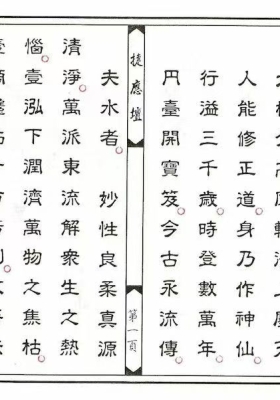 人能修正道。身乃作神仙。
行溢三千歲。時登數萬年。
円臺開寶笈。今古永流傳。
捷應壇 第一頁
夫水者。 妙性良柔真源
清淨。萬派東流解衆生之熱
惱。壹泓下潤濟萬物之焦枯。